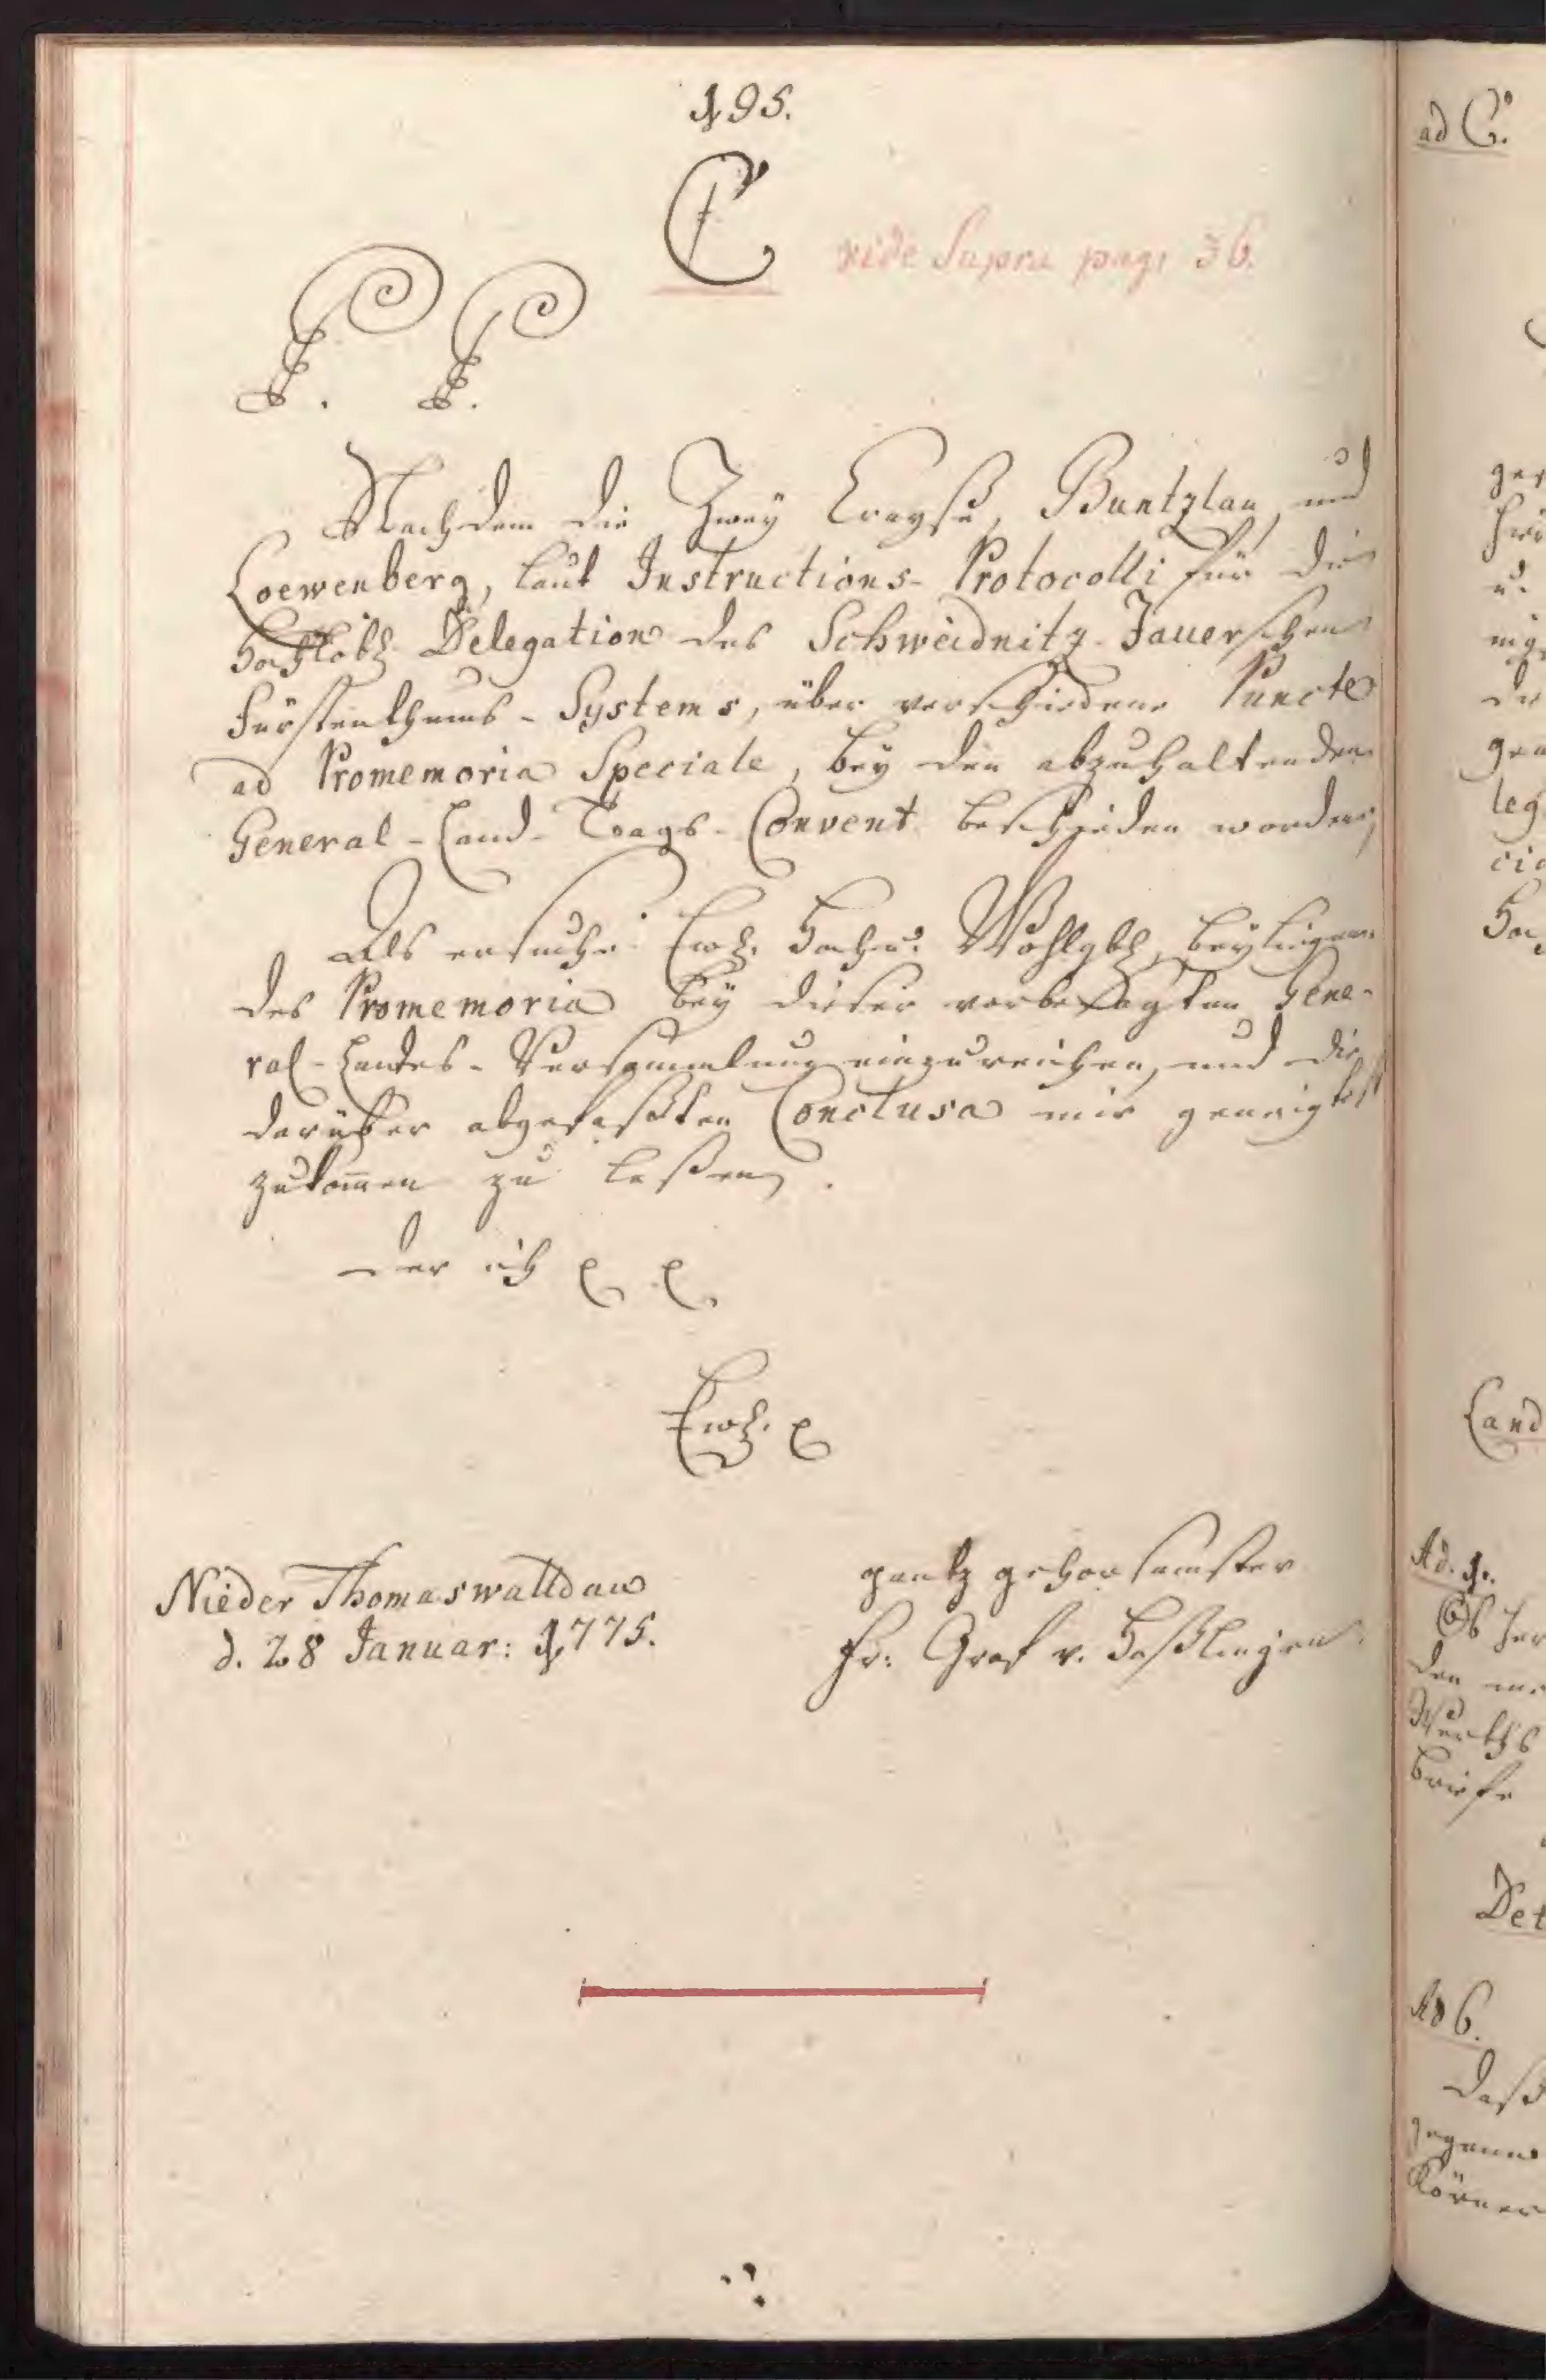 195.
C
vide Supra pag: 36.
P. P.
Nachdem die Zwey Crayse, Buntzlau, und
Loewenberg, laut Instructions-Protocolli für die
Hochlöbl. Delegation des Schweidnitz-Jauerschen
Fürstenthums-Systems, über verschiedene Puncte
ad Promemoria Speciale, bey den abzuhaltenden
General-Land-Tags-Convent beschieden worden,
Als ersuche Ewh. Hoch u. Wohlgb. beyliegen-
des Promemoria bey dieser vorbesagten Gene-
ral-Landes-Versammlung einzureichen, und die
darüber abgefaßten Conclusa mir geneigtest
zukom̅en zu laßen.
der ich
Ewh.
Nieder Thomaswaldau
d. 28 Januar: 1775.
gantz gehorsamster
Fr: Graf v. Haßlingen
ad C.
Land
Ad. 1.
Ob
den
Werths
briefe
Det
Ad 6.
daß
Körner